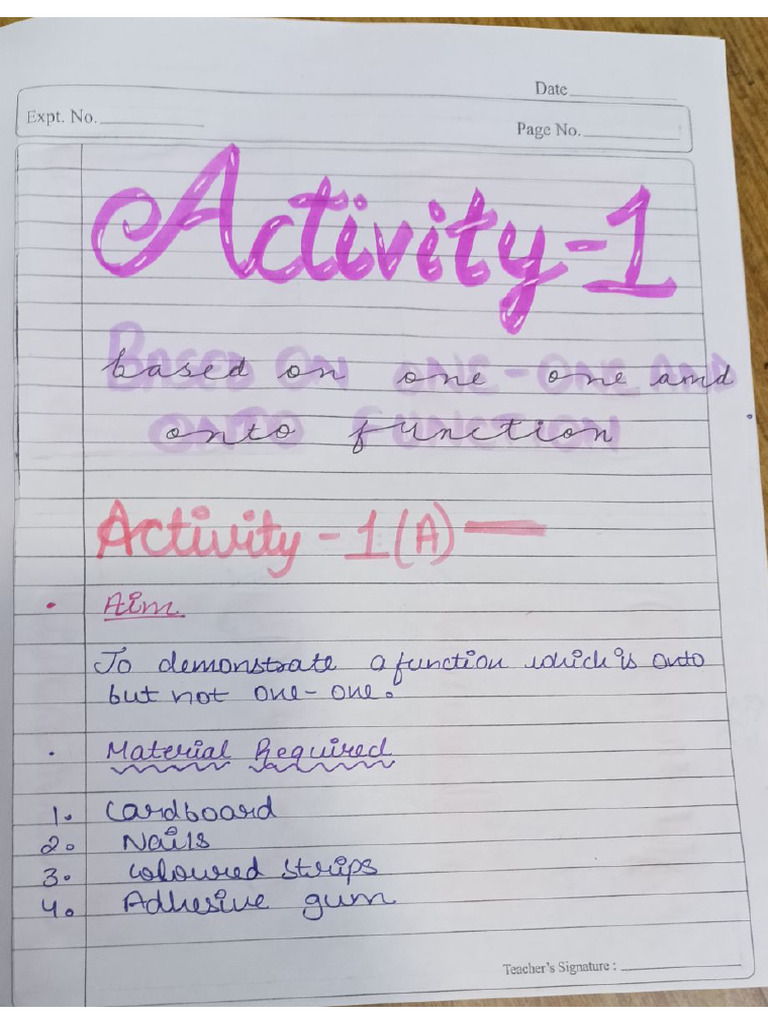 Date
Expt. No.
Page No.
Activity-1
based on one-one and
onto function
Activity-1(A)—
• Aim
To demonstrate a function which is onto
but not one-one.
• Material Required
1. Cardboard
2. Nails
3. Coloured strips
4. Adhesive gum
Teacher's Signature :